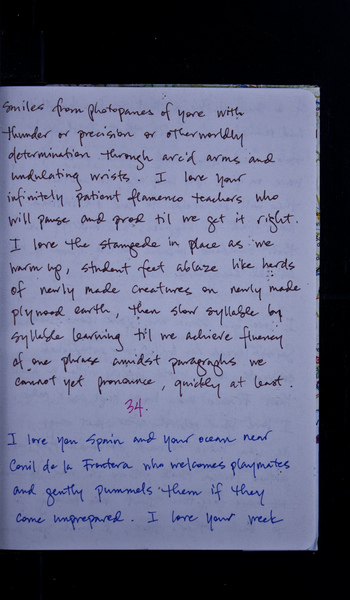 smiles from photopanes of yore with
thunder or precision or otherworldly
determination through arc'd arms and
undulating wrists. I love your
infinitely patient flamenco teachers who
will pause and prod til we get it right.
I love the stampede in place as we
warm up, student feet ablaze like herds
of newly made creatures on newly made
plywood earth, then slow syllable by
syllable learning til we achieve fluency
of one phrase amidst paragraphs we
cannot yet pronounce, quickly at least.
34.
I love you Spain and your ocean near
Conil de la Frontera who welcomes playmates
and gently pummels them if they
come unprepared. I love your meek